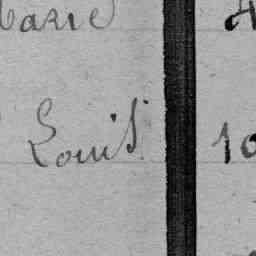 Marie
Louis 10